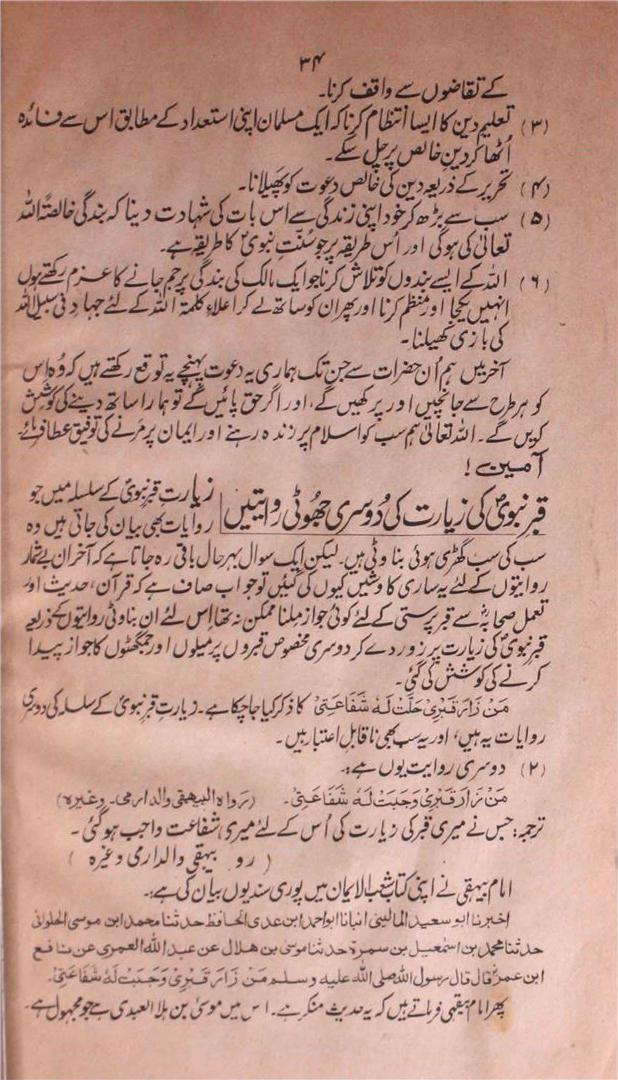 ۳۴
کے تقاضوں سے واقف کرنا۔
(۳) تعلیم دین کا ایسا انتظام کرنا کہ ایک مسلمان اپنی استعداد کے مطابق اس سے فائدہ
اُٹھا کر دینِ خالص پر چل سکے۔
(۴) تحریر کے ذریعہ دین کی خالص دعوت کو پھیلانا۔
(۵) سب سے بڑھ کر خود اپنی زندگی سے اس بات کی شہادت دینا کہ بندگی خالصۃً اللہ
تعالیٰ کی ہوگی اور اُس طریقہ پر جو سُنّتِ نبویؐ کا طریقہ ہے۔
(۶) اللہ کے ایسے بندوں کو تلاش کرنا جو ایک مالک کی بندگی پر جم جانے کا عزم رکھتے ہوں
انہیں یکجا اور منظم کرنا اور پھر ان کو ساتھ لے کر اعلاءِ کلمۃ اللہ کے لئے جہاد فی سبیل اللہ
کی بازی کھیلنا۔
آخر میں ہم اُن حضرات سے جن تک ہماری یہ دعوت پہنچے یہ توقع رکھتے ہیں کہ وُہ اس
کو ہر طرح سے جانچیں اور پرکھیں گے، اور اگر حق پائیں گے تو ہمارا ساتھ دینے کی کوشش
کریں گے۔ اللہ تعالیٰ ہم سب کو اسلام پر زندہ رہنے اور ایمان پر مرنے کی توفیق عطا فرمائے
آمین!
قبرِ نبویؐ کی زیارت کی دُوسری جھُوٹی روایتیں
زیارتِ قبرِ نبویؐ کے سلسلہ میں جو
روایات بھی بیان کی جاتی ہیں وہ
سب کی سب گھڑی ہوئی بناوٹی ہیں۔ لیکن ایک سوال بہر حال باقی رہ جاتا ہے کہ آخر ان بے شمار
روایتوں کے لئے یہ ساری کاوشیں کیوں کی گئیں تو جواب صاف ہے کہ قرآن، حدیث اور
تعمل صحابہؓ سے قبر پرستی کے لئے کوئی جواز ملنا ممکن نہ تھا اس لئے ان بناوٹی روایتوں کے ذریعے
قبرِ نبویؐ کی زیارت پر زور دے کر دوسری مخصوص قبروں پر میلوں اور جمگھٹوں کا جواز پیدا
کرنے کی کوشش کی گئی۔
مَنْ زَارَ قَبْرِیْ حَلَّتْ لَہٗ شَفَاعَتِیْ کا ذکر کیا جا چکا ہے۔ زیارتِ قبرِ نبویؐ کے سلسلہ کی دوسری
روایات یہ ہیں، اور یہ سب بھی ناقابلِ اعتبار ہیں۔
(۲) دوسری روایت یوں ہے:۔
مَنْ زَارَ قَبْرِیْ وَجَبَتْ لَہٗ شَفَاعَتِیْ۔ (رواہ البیہقی والدارمی۔ وغیرہ)
ترجمہ: جس نے میری قبر کی زیارت کی اُس کے لئے میری شفاعت واجب ہوگئی۔
(رو بیہقی والداری وغیرہ)
امام بیہقی نے اپنی کتاب شعب الایمان میں پوری سند یوں بیان کی ہے:۔
اخبرنا ابو سعید المالینی انبانا ابو احمد ابن عدی الحافظ حدثنا محمد ابن موسی الحلوانی
حدثنا محمد بن اسمٰعیل بن سمرۃ حدثنا موسی بن ھلال عن عبد اللہ العمری عن نافع
ابن عمرؓ قال قال رسول اللہ صلی اللہ علیہ وسلم مَنْ زَارَ قَبْرِیْ وَجَبَتْ لَہٗ شَفَاعَتِیْ۔
پھر امام بیہقی فرماتے ہیں کہ یہ حدیث منکر ہے۔ اس میں موسیٰ بن ہلال العبدی ہے جو مجہول ہے۔